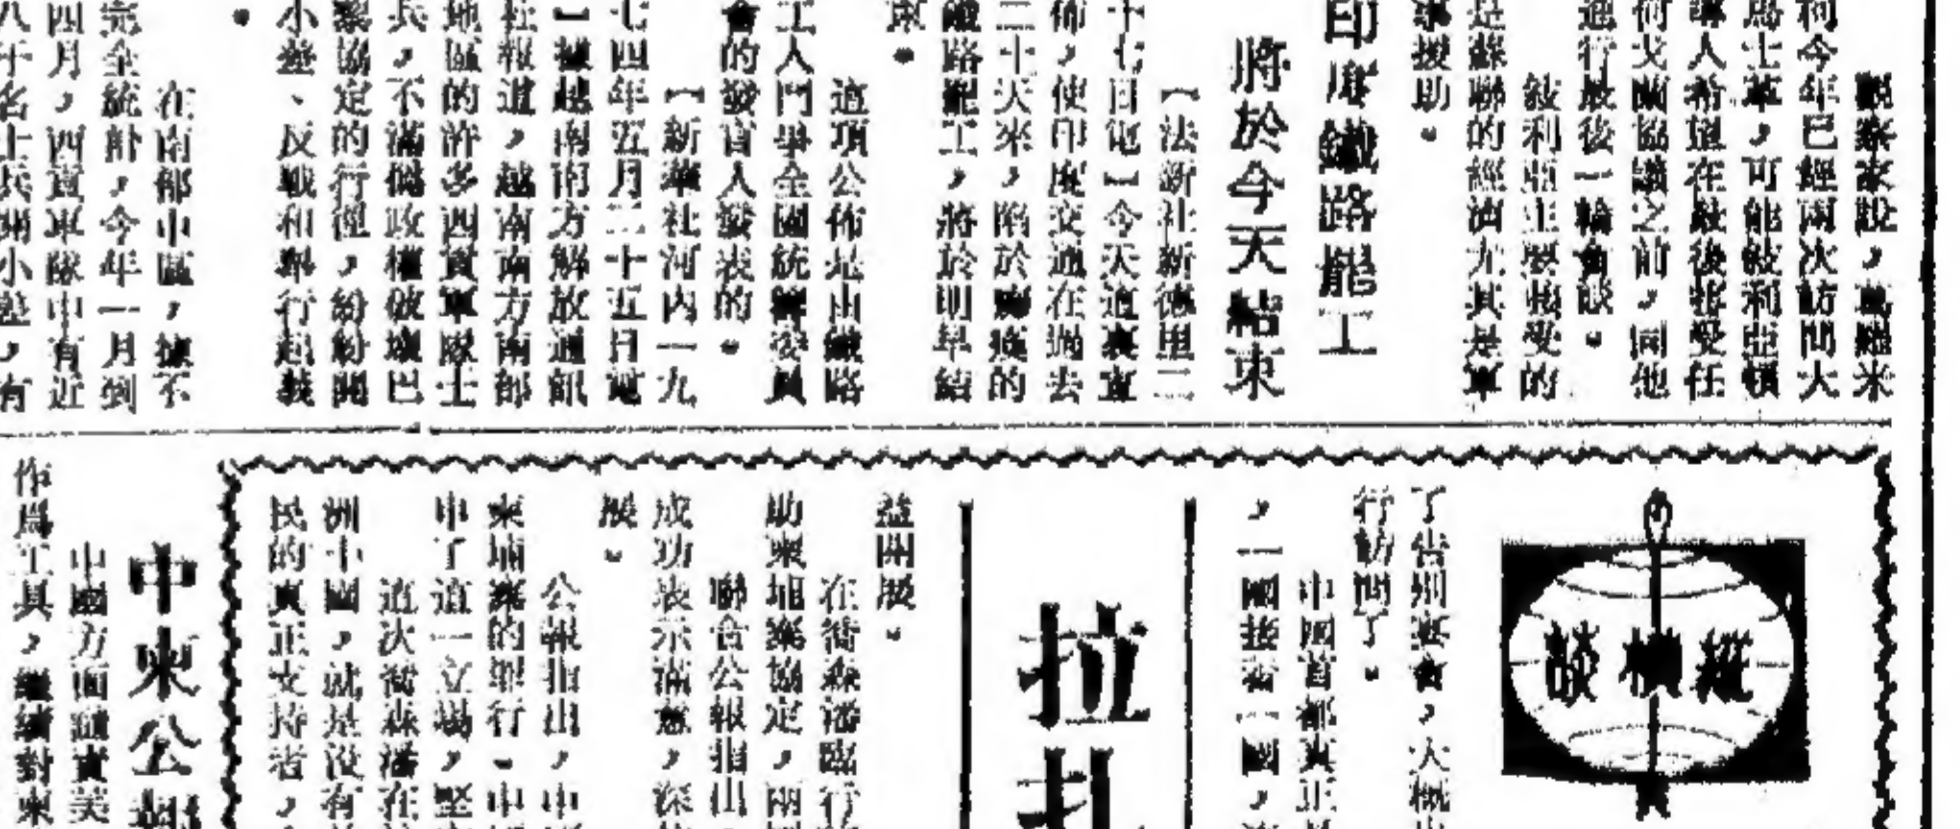 觀察家說，萬隆米
利今年已經兩次訪問大
馬士革，可能敍利亞領
導人希望在最後接受任
何戈蘭協議之前，同他
進行最後一輪會談。
敍利亞主要接受的
是蘇聯的經濟尤其是軍
事援助。
印度鐵路罷工
將於今天結束
【法新社新德里二
十七日電】今天這裏宣
佈，使印度交通在過去
二十天來，陷於癱瘓的
鐵路罷工，將於明早結
束。
這項公佈是由鐵路
工人鬥爭全國統籌委員
會的發言人發表的。
【新華社河內一九
七四年五月二十五日電
】據越南南方解放通訊
社報道，越南南方南部
地區的許多西貢軍隊士
兵，不滿僞政權破壞巴
黎協定的行徑，紛紛開
小差、反戰和舉行起義
。
在南部中區，據不
完全統計，今年一月到
四月，西貢軍隊中有近
八千名士兵開小差，有
縱橫談
了告別宴會，大概
行訪問了。
中國首都真正
，一國接着一國，
拉扎
益開展。
在喬森潘臨行
助柬埔寨協定，兩
聯合公報指出，
成功表示滿意，深
展。
公報指出，中
柬埔寨的罪行。中
申了這一立場，堅
這次喬森潘在
洲中國，就是沒有
民的真正支持者，
中柬公報
中國方面譴責美
作爲工具，繼續對柬